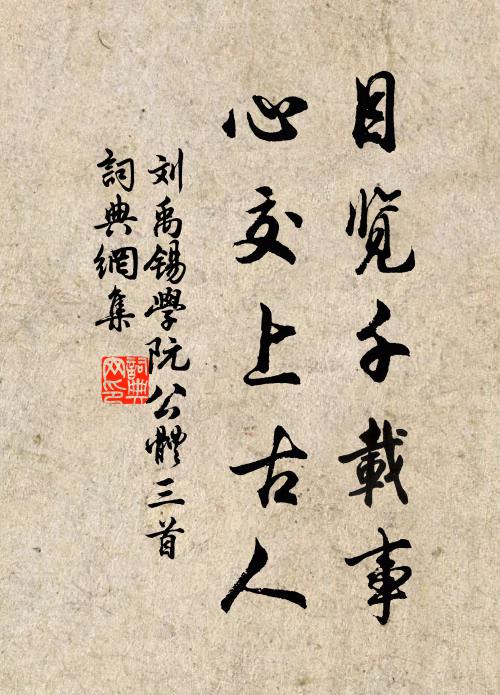 目览千載事
心交上古人
刘禹锡學阮公體三首
詞典網集
詞典
网印